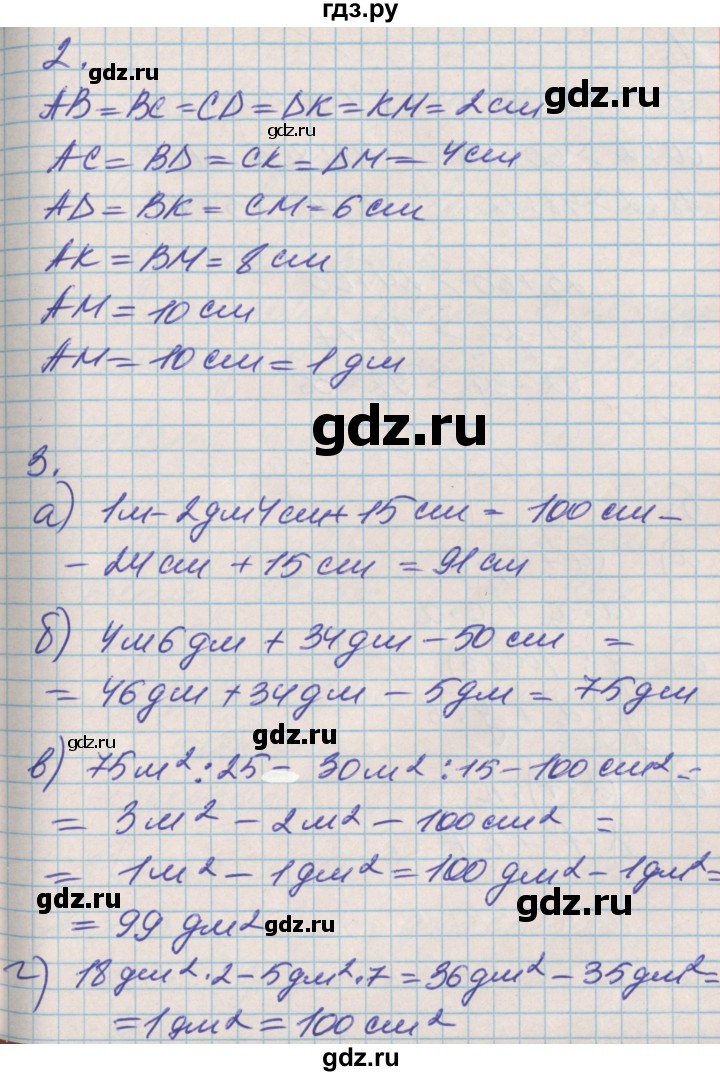 гдз.ру
2.
gdz.ru
gdz.ru
AB = BC = CD = DK = KM = 2 см
gdz.ru
AC = BD = CK = DM = 4 см
AD = BK = CM = 6 см
AK = BM = 8 см
AM = 10 см
gdz.ru
AM = 10 см = 1 дм
gdz.ru
3.
а) 1м - 2дм 4см + 15 см = 100 см -
- 24 см + 15 см = 91 см
б) 4м 6 дм + 34 дм - 50 см =
= 46 дм + 34 дм - 5 дм = 75 дм
gdz.ru
gdz.ru
в) 75 м² : 25 - 30 м² : 15 - 100 см² =
= 3 м² - 2 м² - 100 см² =
= 1 м² - 1 дм² = 100 дм² - 1 дм² =
gdz.ru
gdz.ru
= 99 дм²
г) 18 дм² · 2 - 5 дм² · 7 = 36 дм² - 35 дм² =
= 1 дм² = 100 см²
gdz.ru